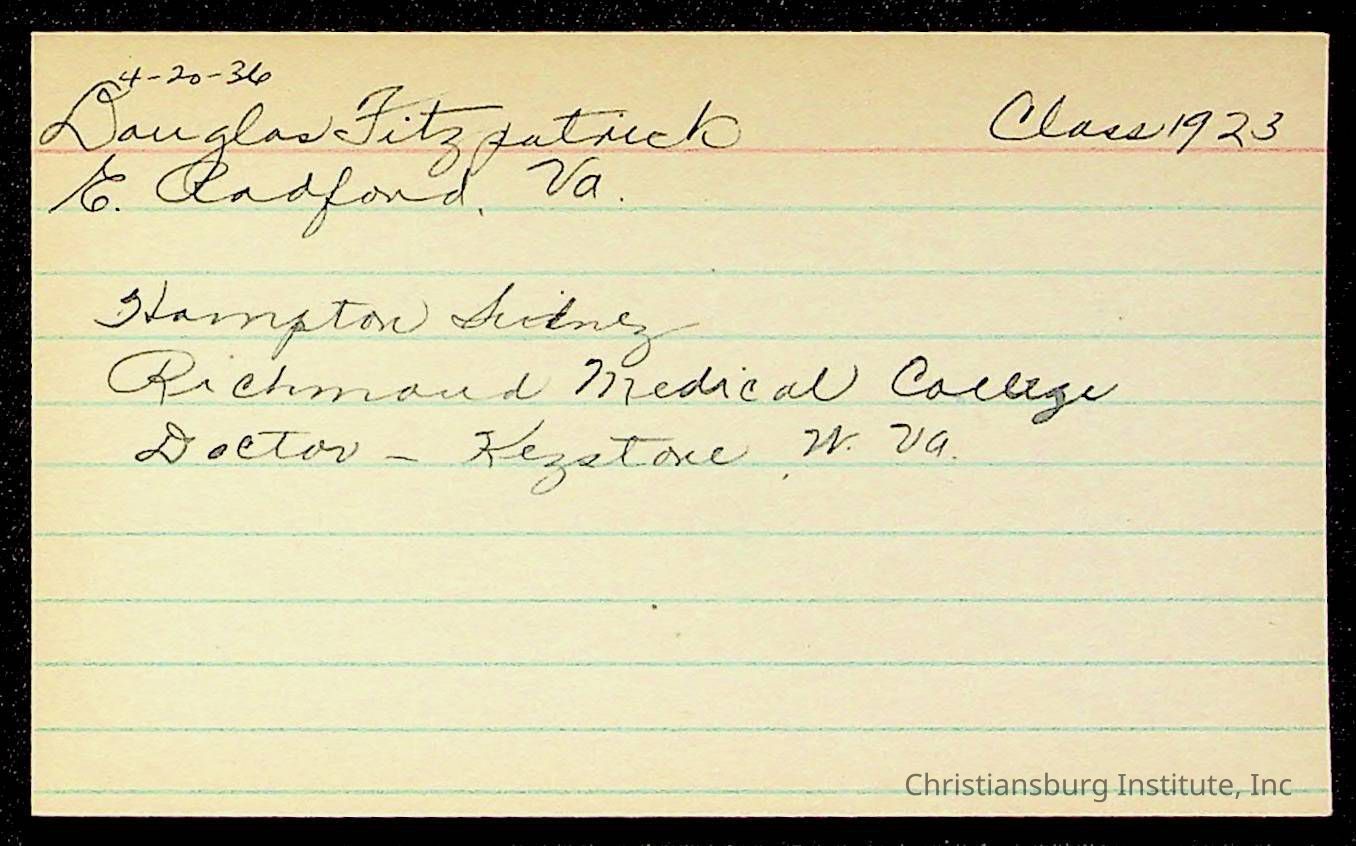 4-20-36
Douglas Fitzpatrick Class 1923
E. Radford, Va.
Hampton Sidney
Richmond Medical College
Doctor - Keystone, W. Va.
Christiansburg Institute, Inc